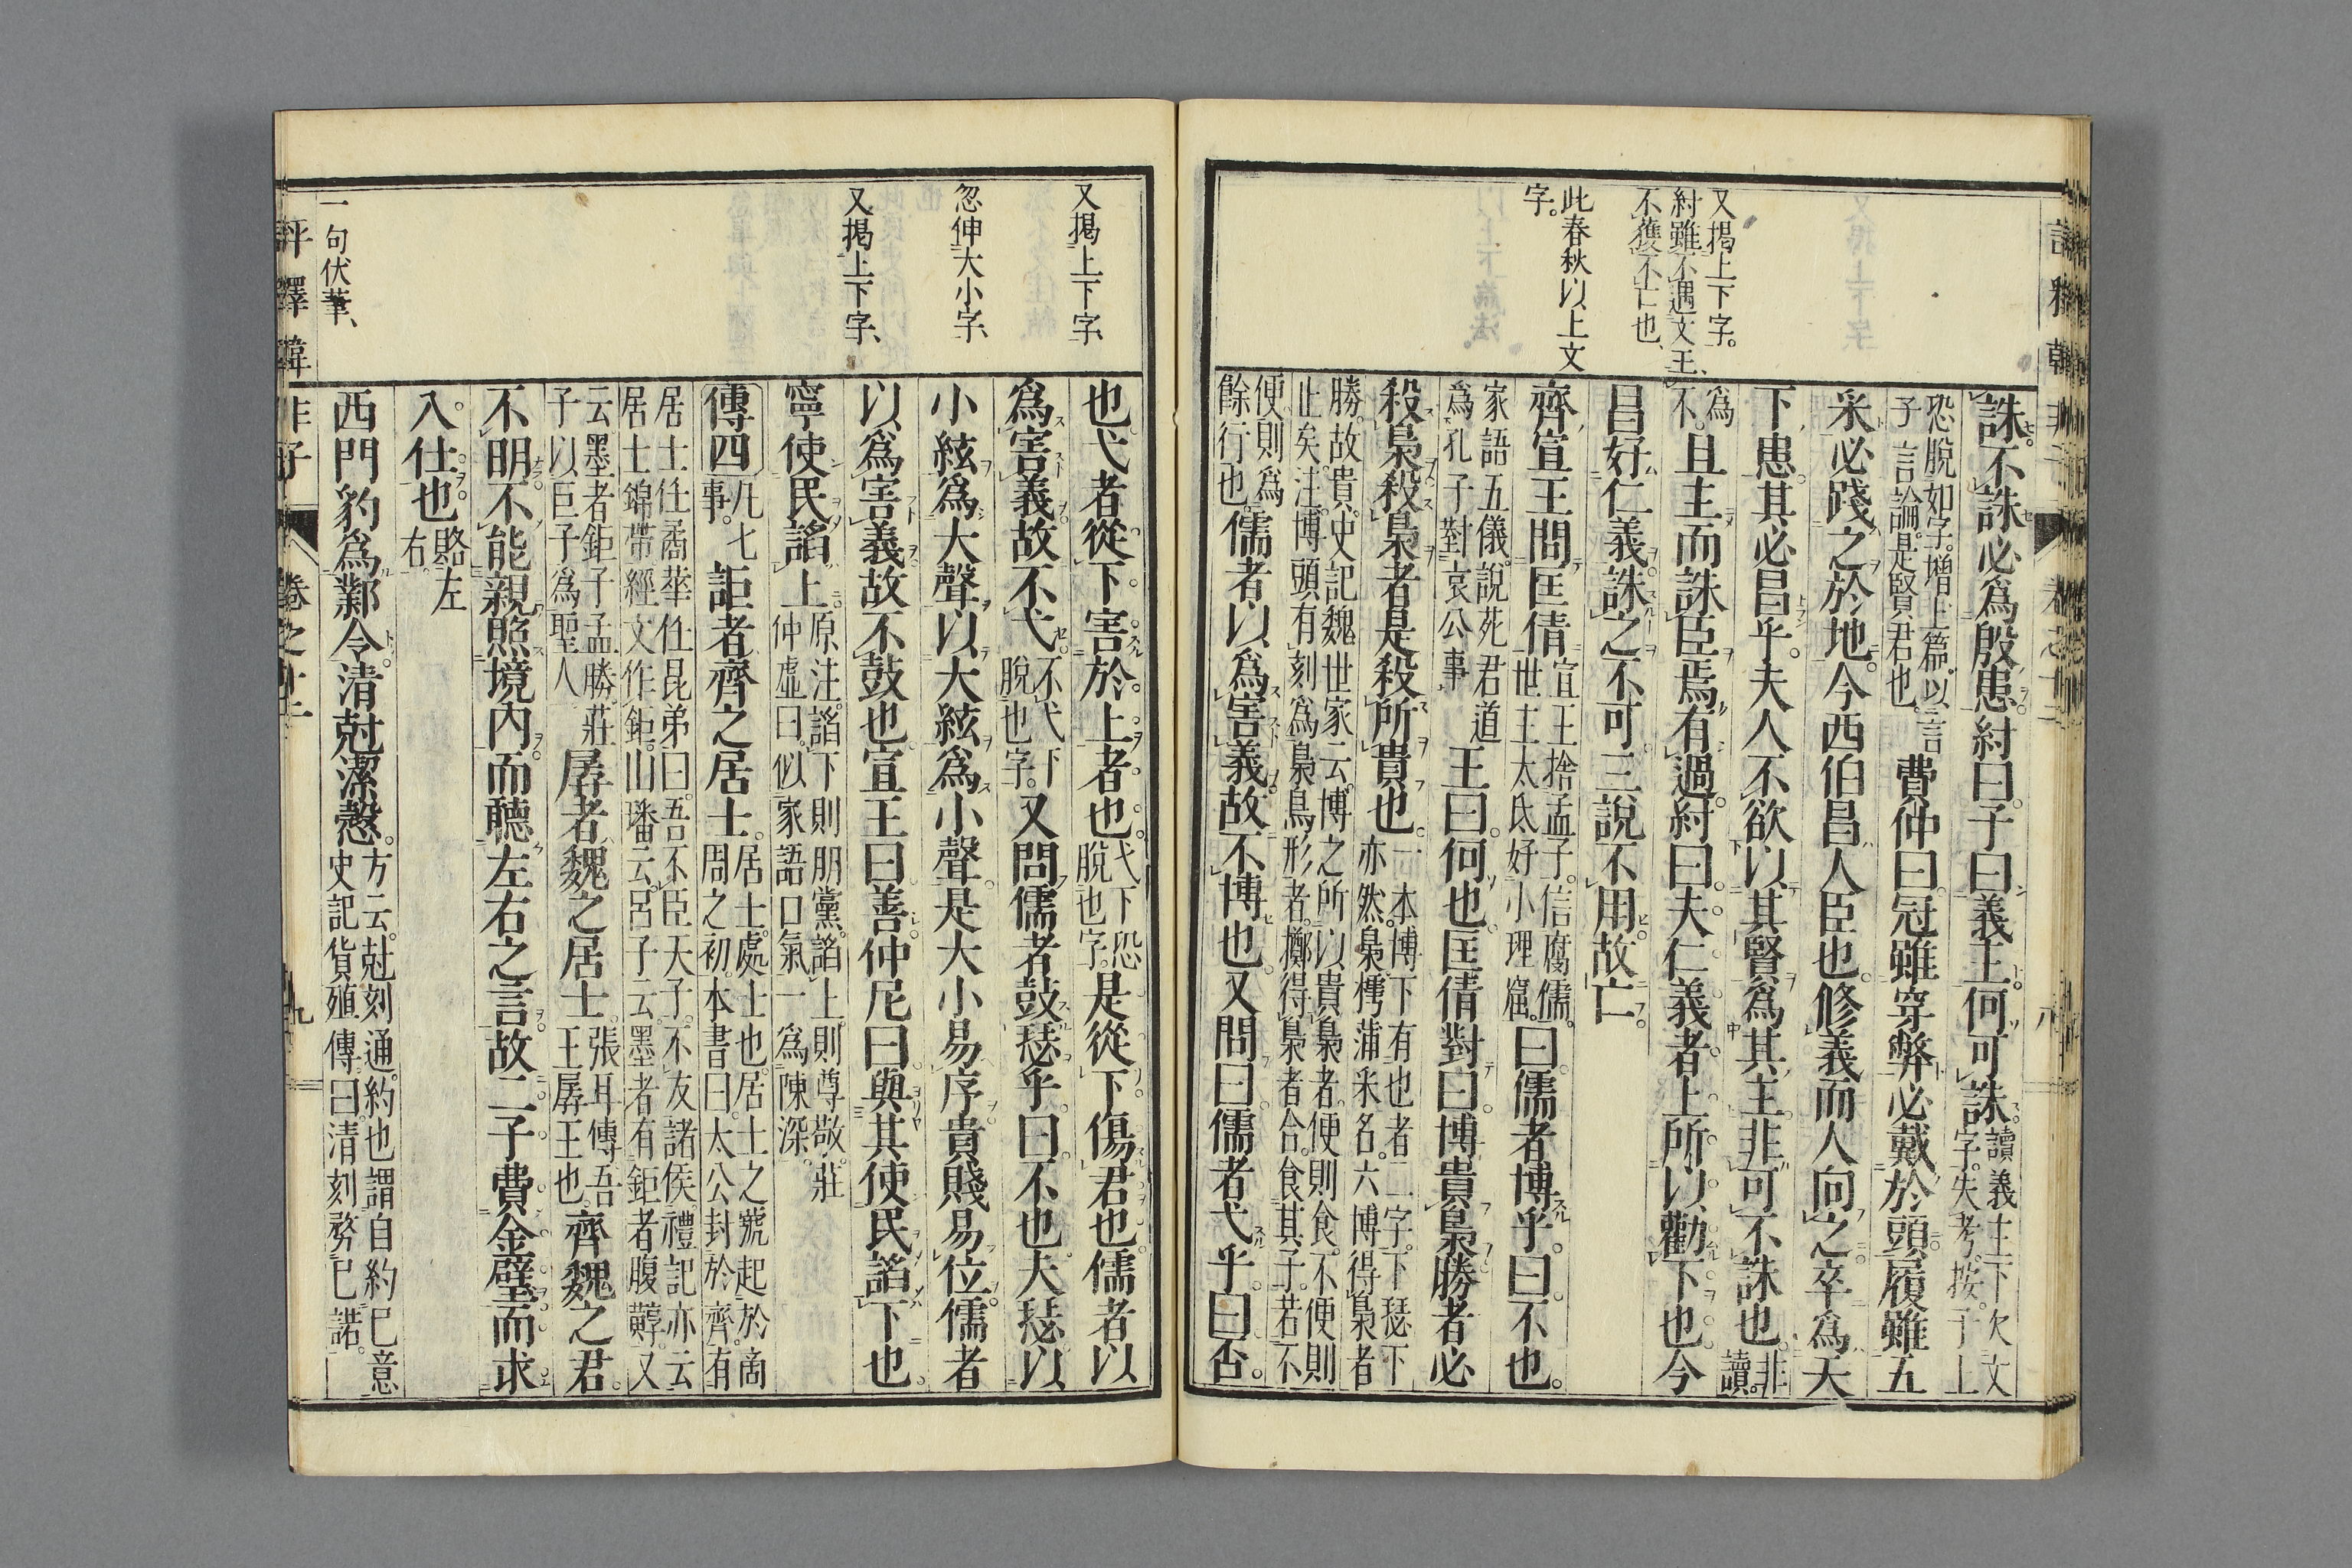 又揭上下字。
紂雖不遇文王、
不獲不亡也、
此春秋以上文
字。
誅。不誅必爲殷患。紂曰。子曰。義主何可誅。讀義主下欠文字。失考。按。子上
恐脫如字。增上篇。以言子言論。是賢君也。費仲曰。冠雖穿弊。必戴於頭。履雖五
采必踐之於地。今西伯昌人臣也。修義而人向之。卒爲天
下患。其必昌乎。夫人不欲以其賢爲其主。非可不誅也。非讀
爲不。且主而誅臣。焉有過。紂曰。夫仁義者。上所以勸下也。今
昌好仁義。誅之不可。三說不用。故亡。
齊宣王問匡倩宣王捨孟子。信腐儒。世主太氐好小理窟。曰。儒者博乎。曰。不也。
家語五儀。說苑君道爲孔子對哀公事。王曰。何也。匡倩對曰。博貴梟。勝者必
殺梟。殺梟者。是殺所貴也。一本博下有也者二字。下瑟下亦然。梟樗蒲采名。六博得梟者
勝。故貴。史記魏世家云。博之所以貴梟者。便則食。不便則止矣。注。博頭有刻爲梟鳥形者。擲得梟者合食其子。若不
便則爲餘行也。儒者以爲害義。故不博也。又問曰。儒者弋乎。曰。否。
又揭上下字、
忽伸大小字、
又揭上下字、
一句伏華、
也弋者。從下害於上者也。弋下恐脫也字。是從下傷君也。儒者以
爲害義。故不弋。不弋下脫也字。又問。儒者鼓瑟乎。曰。不也。夫瑟以
小絃爲大聲。以大絃爲小聲。是大小易序。貴賤易位。儒者
以爲害義。故不鼓也。宣王曰。善。仲尼曰。與其使民諂下也。
寧使民諂上。原注。諂下則朋黨。諂上則尊敬。莊仲虛曰。似家語口氣。一爲陳深。
傳四凡七事。詎者。齊之居士。居士。處士也。居士之號起於商周之初。本書曰。太公封於齊。有
居士任矞華仕昆弟曰。吾不臣天子。不友諸侯。禮記亦云居士錦帶。經文作鉅。山璠云。呂子云。墨者有鉅者腹䵍。又
云墨者鉅子孟勝。莊子以巨子爲聖人。孱者。魏之居士。張耳傳吾王孱王也。齊魏之君。
不明。不能親照境內。而聽左右之言。故二子費金璧而求
入仕也。賂左右。
西門豹爲鄴令。清尅潔愨。方云。尅刻通。約也。謂自約已意史記貨殖傳曰。清刻務已諾。
評釋韓非子 卷之十二 九